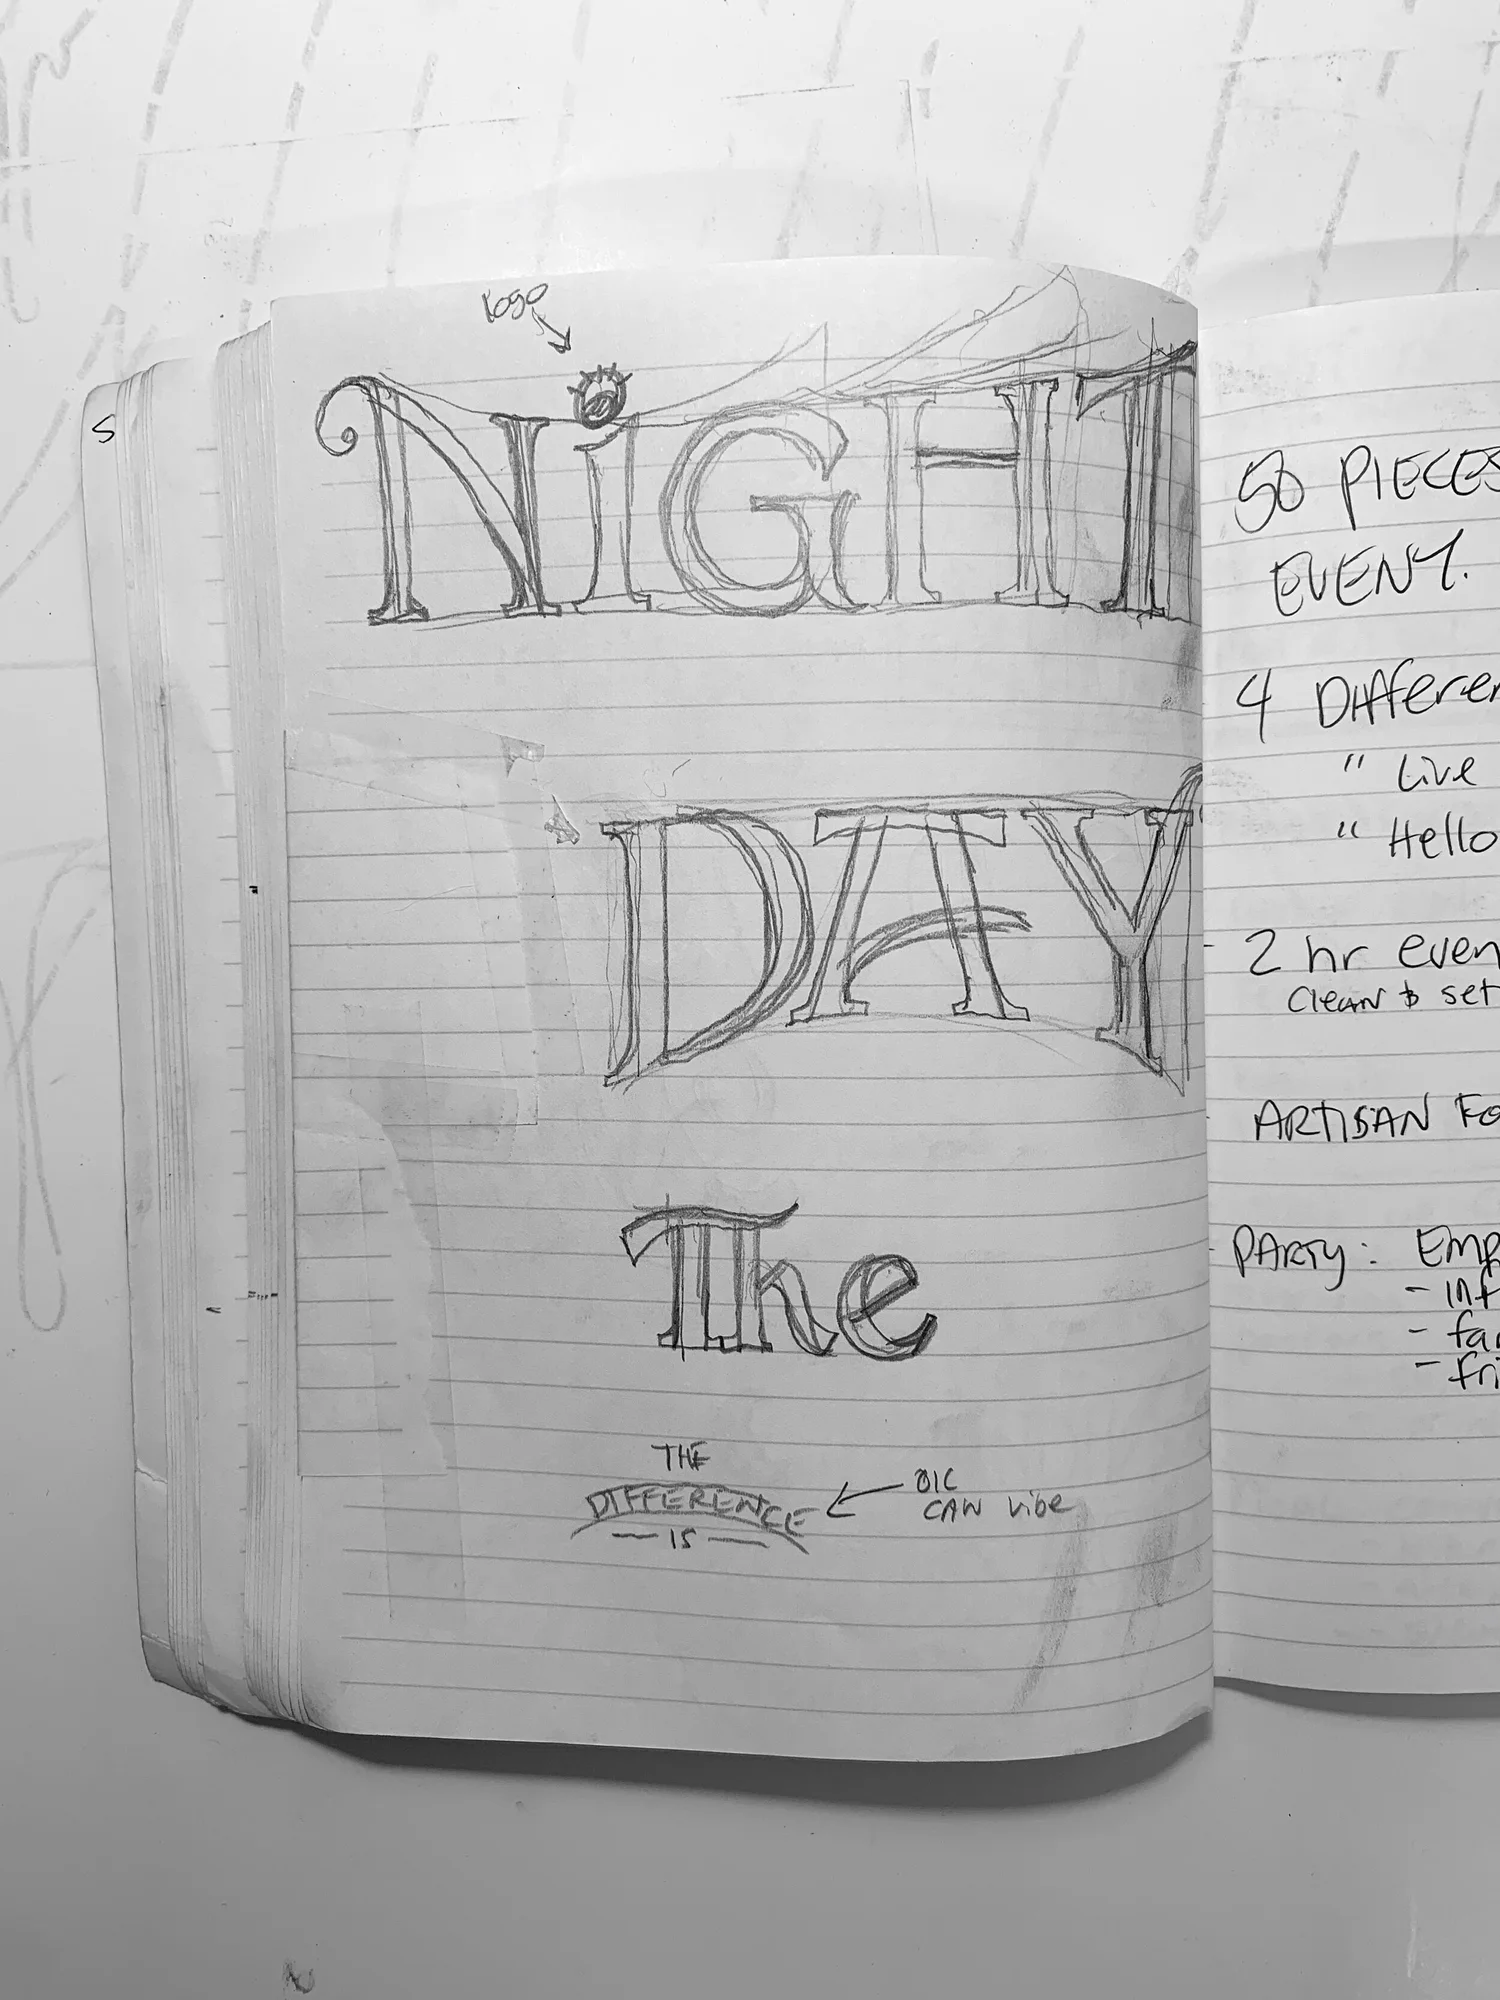 logo
NiGHT
DAY
The
THE
DIFFERENCE
— IS —
CAN vibe
S
50 PIECES
EVENT.
4 Differen
" Live
" Hello
- 2 hr even
Clean & set
ARTISAN Fo
- PARTY: EMP
- inf
- fam
- fri